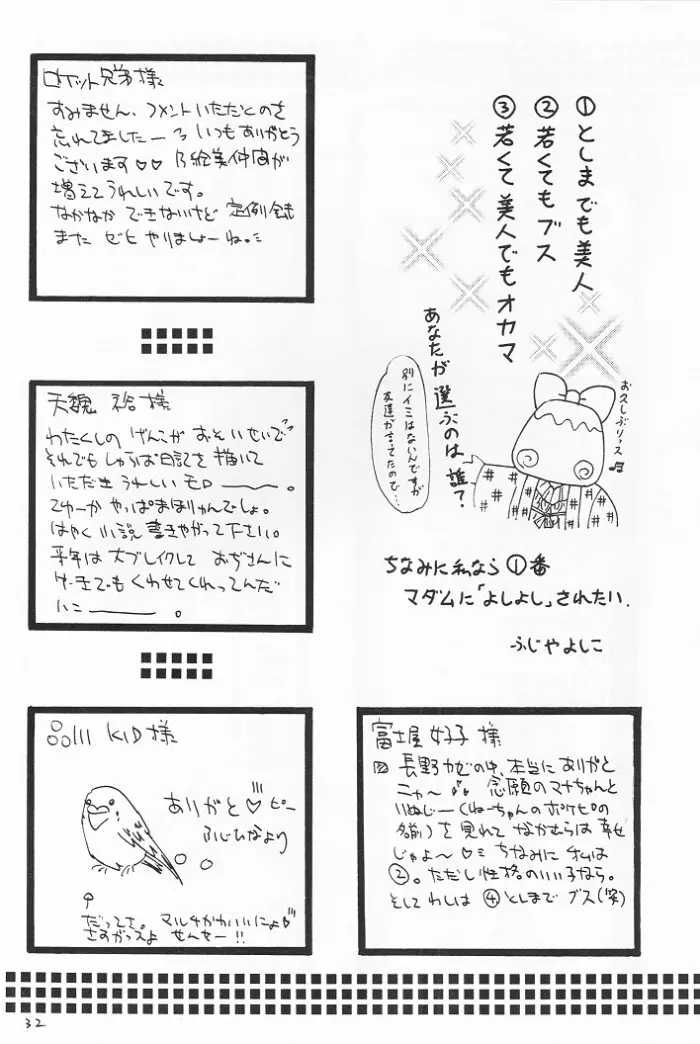 ①としまでも美人
②若くてもブス
③若くて美人でもオカマ
あなたが選ぶのは誰？
別にイミはないんですが
友達が言ってたので…
お久しぶりっス
ちなみに私なら①番
マダムに「よしよし」されたい.
ふじやよしこ
ロケット兄弟様
すみません、コメントいただくのを
忘れてましたー いつもありがとう
ございます♡♡ 絵美仲間が
増えてうれしいです。
なかなか できないけど 定例会
また ゼヒ やりましょーね。
天魏 裕様
わたくしの げんこが おそいせいで
それでも しゃろお日記を描いて
いただき うれしい モロ――。
てゆーか やっぱ まほりゅんでしょ。
はやく 小説 書きやがって下さい。
来年は 大ブレイクして おぢさんに
ケーキでも くわせてくれってんだ
いこ――。
品川 KID 様
ありがと♡ピー
ふじひなより
だってさ。 マルチかわいいにょ
さすがっスよ せんせー!!
富士屋 好子 様
長野カゼの中、本当に ありがと
ニャ〜 念願のマナちゃんと
いぬじー(ねーちゃんのポケピの
名前)を 見れて なかむらは 幸せ
じゃよ〜♡ ちなみに オムは
②。ただし 性格のいい子なら。
そして わしは ④としまで ブス(笑)
32